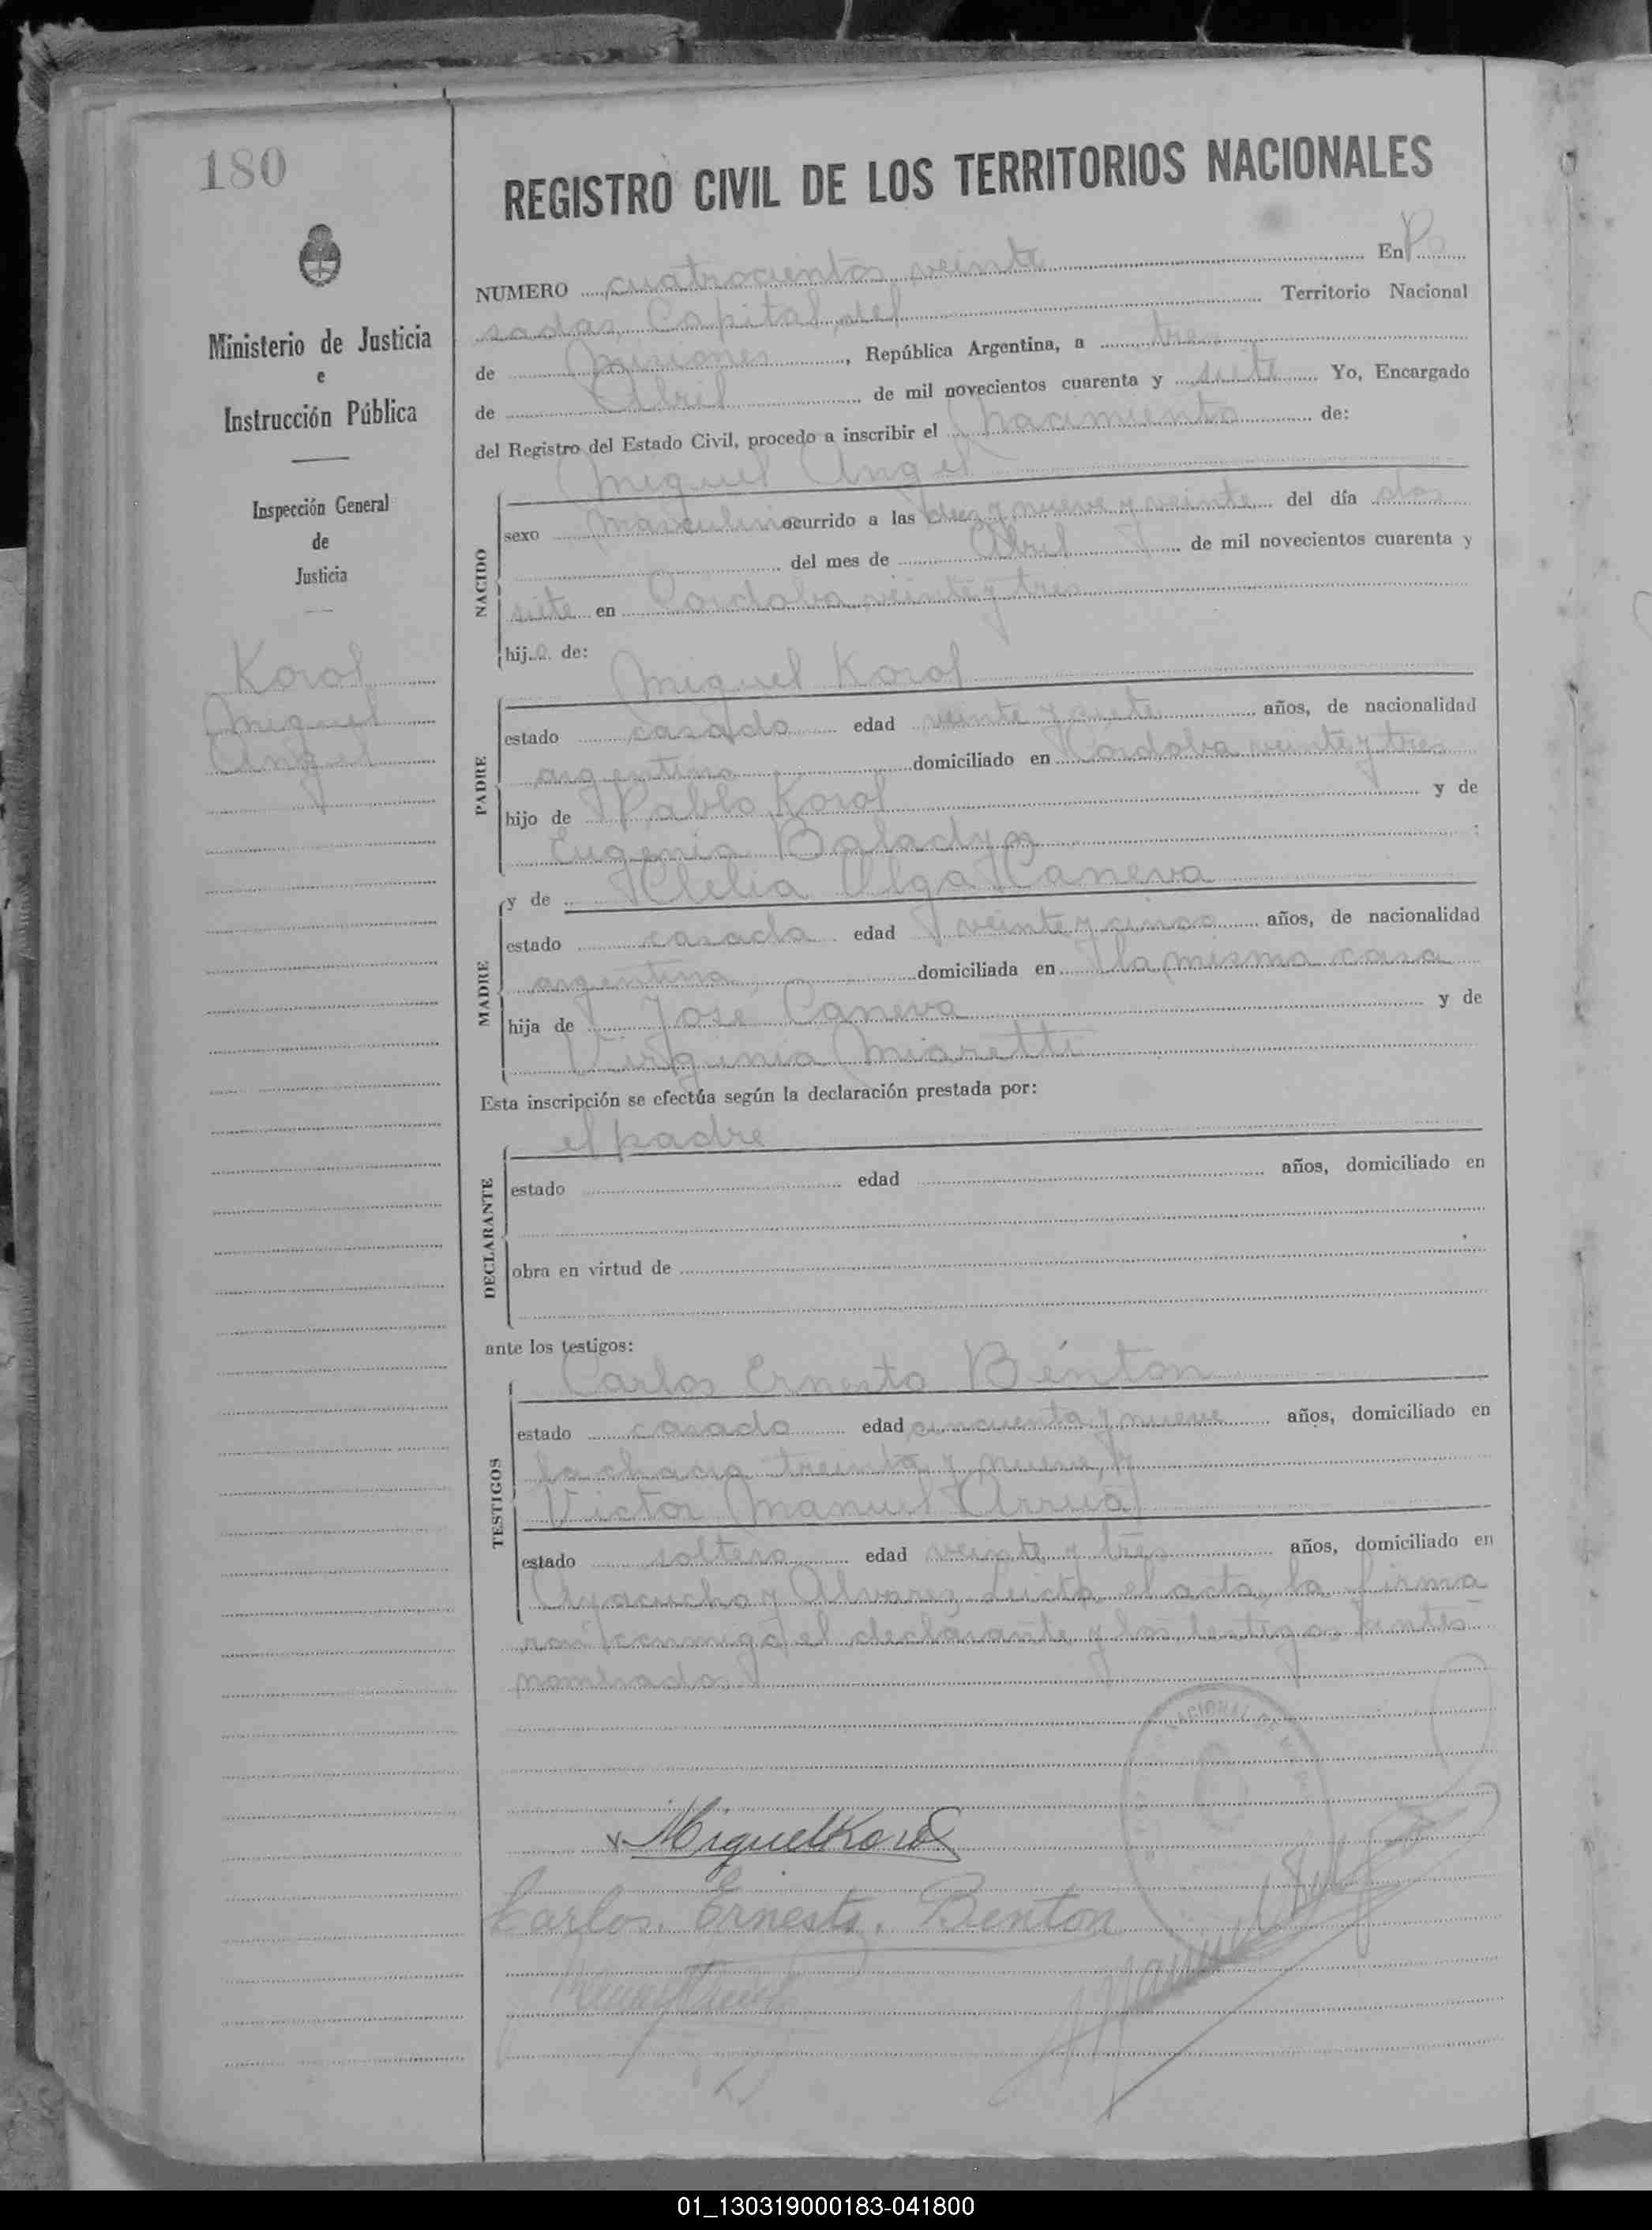 180
Ministerio de Justicia
e
Instrucción Pública
Inspección General
de
Justicia
Korol
Miguel
Angel
REGISTRO CIVIL DE LOS TERRITORIOS NACIONALES
NUMERO cuatrocientos veinte En Po
sadas, Capital del Territorio Nacional
de Misiones, República Argentina, a tres
de Abril de mil novecientos cuarenta y siete Yo, Encargado
del Registro del Estado Civil, procedo a inscribir el nacimiento de:
Miguel Angel
NACIDO
sexo masculino ocurrido a las diez y nueve y veinte del día dos
del mes de Abril de mil novecientos cuarenta y
siete en Cordoba veinte y tres
hijo de:
Miguel Korol
PADRE
estado casado edad veinte y siete años, de nacionalidad
argentino domiciliado en Cordoba veinte y tres
hijo de Pablo Korol y de
Eugenia Baladyn
MADRE
y de Clelia Olga Caneva
estado casada edad veinte y cinco años, de nacionalidad
argentina domiciliada en la misma casa
hija de José Caneva y de
Virginia Mioretti
Esta inscripción se efectúa según la declaración prestada por:
el padre
DECLARANTE
estado edad años, domiciliado en
obra en virtud de
ante los testigos:
Carlos Ernesto Bénton
TESTIGOS
estado casado edad cincuenta y nueve años, domiciliado en
la chacra treinta y nueve, y
Victor Manuel Arrua
estado soltero edad veinte y tres años, domiciliado en
Ayacucho y Alvarez. Leida el acta, la firma
ron conmigo el declarante y los testigos antes
nombrados.
NACIONAL DE
x Miguel Korol
Carlos. Ernesto. Benton
01_130319000183-041800